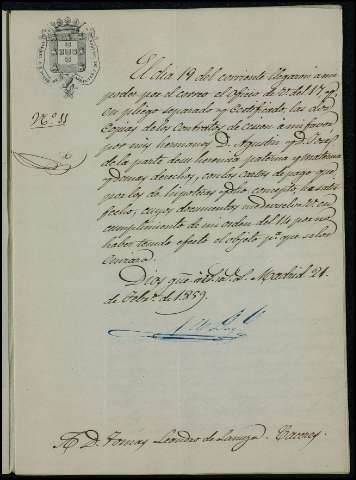 Nº 11
El dia 19 del corriente llegaron a mi
poder por el correo el oficio de V. del 17 y
en pliego separado y certificado, las dos
Copias de los contratos de cesion á mi favor
por mis hermanos D. Agustin y D. José
de la parte de herencia paterna y materna
y demas derechos, con las cartas de pago que
por los de hipotecas y dho concepto, ha satis
fecho, cuyos documentos me devuelve V. en
cumplimiento de mi orden del 14 por no
haber tenido efecto el objeto pª que se los
Dios gue á V. m. a. Madrid 21.
de Febº de 1859.
D. Tomas Leandro de Lamiza. Caceres.